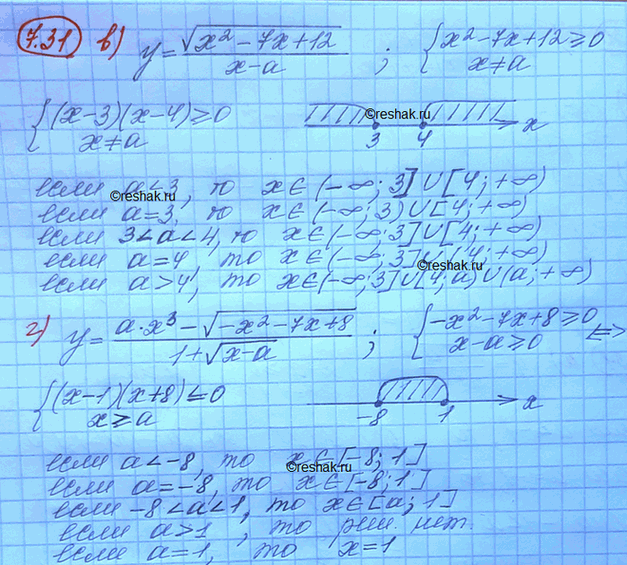 7.31 в) y = √(x² − 7x + 12) / (x − a) ; { x² − 7x + 12 ≥ 0
x ≠ a
{ (x−3)(x−4) ≥ 0
x ≠ a
©reshak.ru
3 4 x
если a < 3, то x ∈ (−∞; 3] ∪ [4; +∞)
©reshak.ru
если a = 3, то x ∈ (−∞; 3) ∪ [4; +∞)
если 3 < a < 4, то x ∈ (−∞; 3] ∪ [4; +∞)
если a = 4, то x ∈ (−∞; 3] ∪ (4; +∞)
©reshak.ru
если a > 4, то x ∈ (−∞; 3] ∪ [4; a) ∪ (a; +∞)
г) y = (a·x³ − √(−x² − 7x + 8)) / (1 + √(x − a)) ; { −x² − 7x + 8 ≥ 0 ⇔
x − a ≥ 0
{ (x−1)(x+8) ≤ 0
x ≥ a
−8 1 x
если a < −8, то x ∈ [−8; 1]
©reshak.ru
если a = −8, то x ∈ [−8; 1]
если −8 < a < 1, то x ∈ [a; 1]
если a > 1, то реш. нет.
если a = 1, то x = 1